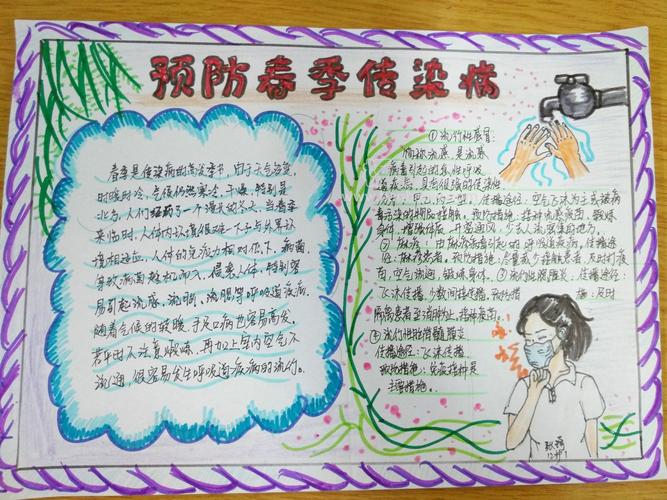 预防春季传染病
春季是传染病的高发季节,由于天气多变,
时暖时冷,气候仍然寒冷、干燥,特别是
北方,人们经历了一个漫长的冬天,当春季
来临时,人体内环境很难一下子与外界环
境相适应,人体的免疫力相对低下,病菌、
等致病菌趁机而入,侵袭人体,特别容
易引起流感、流脑、流腮等呼吸道疾病,
随着气候的转暖,手足口病也容易高发,
若平时不注意锻炼,再加上室内空气不
流通,很容易发生呼吸道疾病的流行。
①流行性感冒:
简称流感,是流感
病毒引起的急性呼吸
道疾病,具有很强的传染性
分为:甲、乙、丙三型。传播途径:空气飞沫为主或被病
毒污染的物品接触。预防措施:接种流感疫苗,锻炼
身体,增强体质,开窗通风,少去人流密集的地方。
②麻疹:由麻疹病毒引起的呼吸道疾病。传播途
径:麻疹患者。预防措施:尽量减少接触患者,及时打疫
苗,空气流通,锻炼身体。③流行性腮腺炎:传播途径:
飞沫传播,少数间接传播。预防措施:及时
隔离患者至消肿为止,接种疫苗。
④流行性脑脊髓膜炎
传播途径:飞沫传播
预防措施:免疫接种是
主要措施。